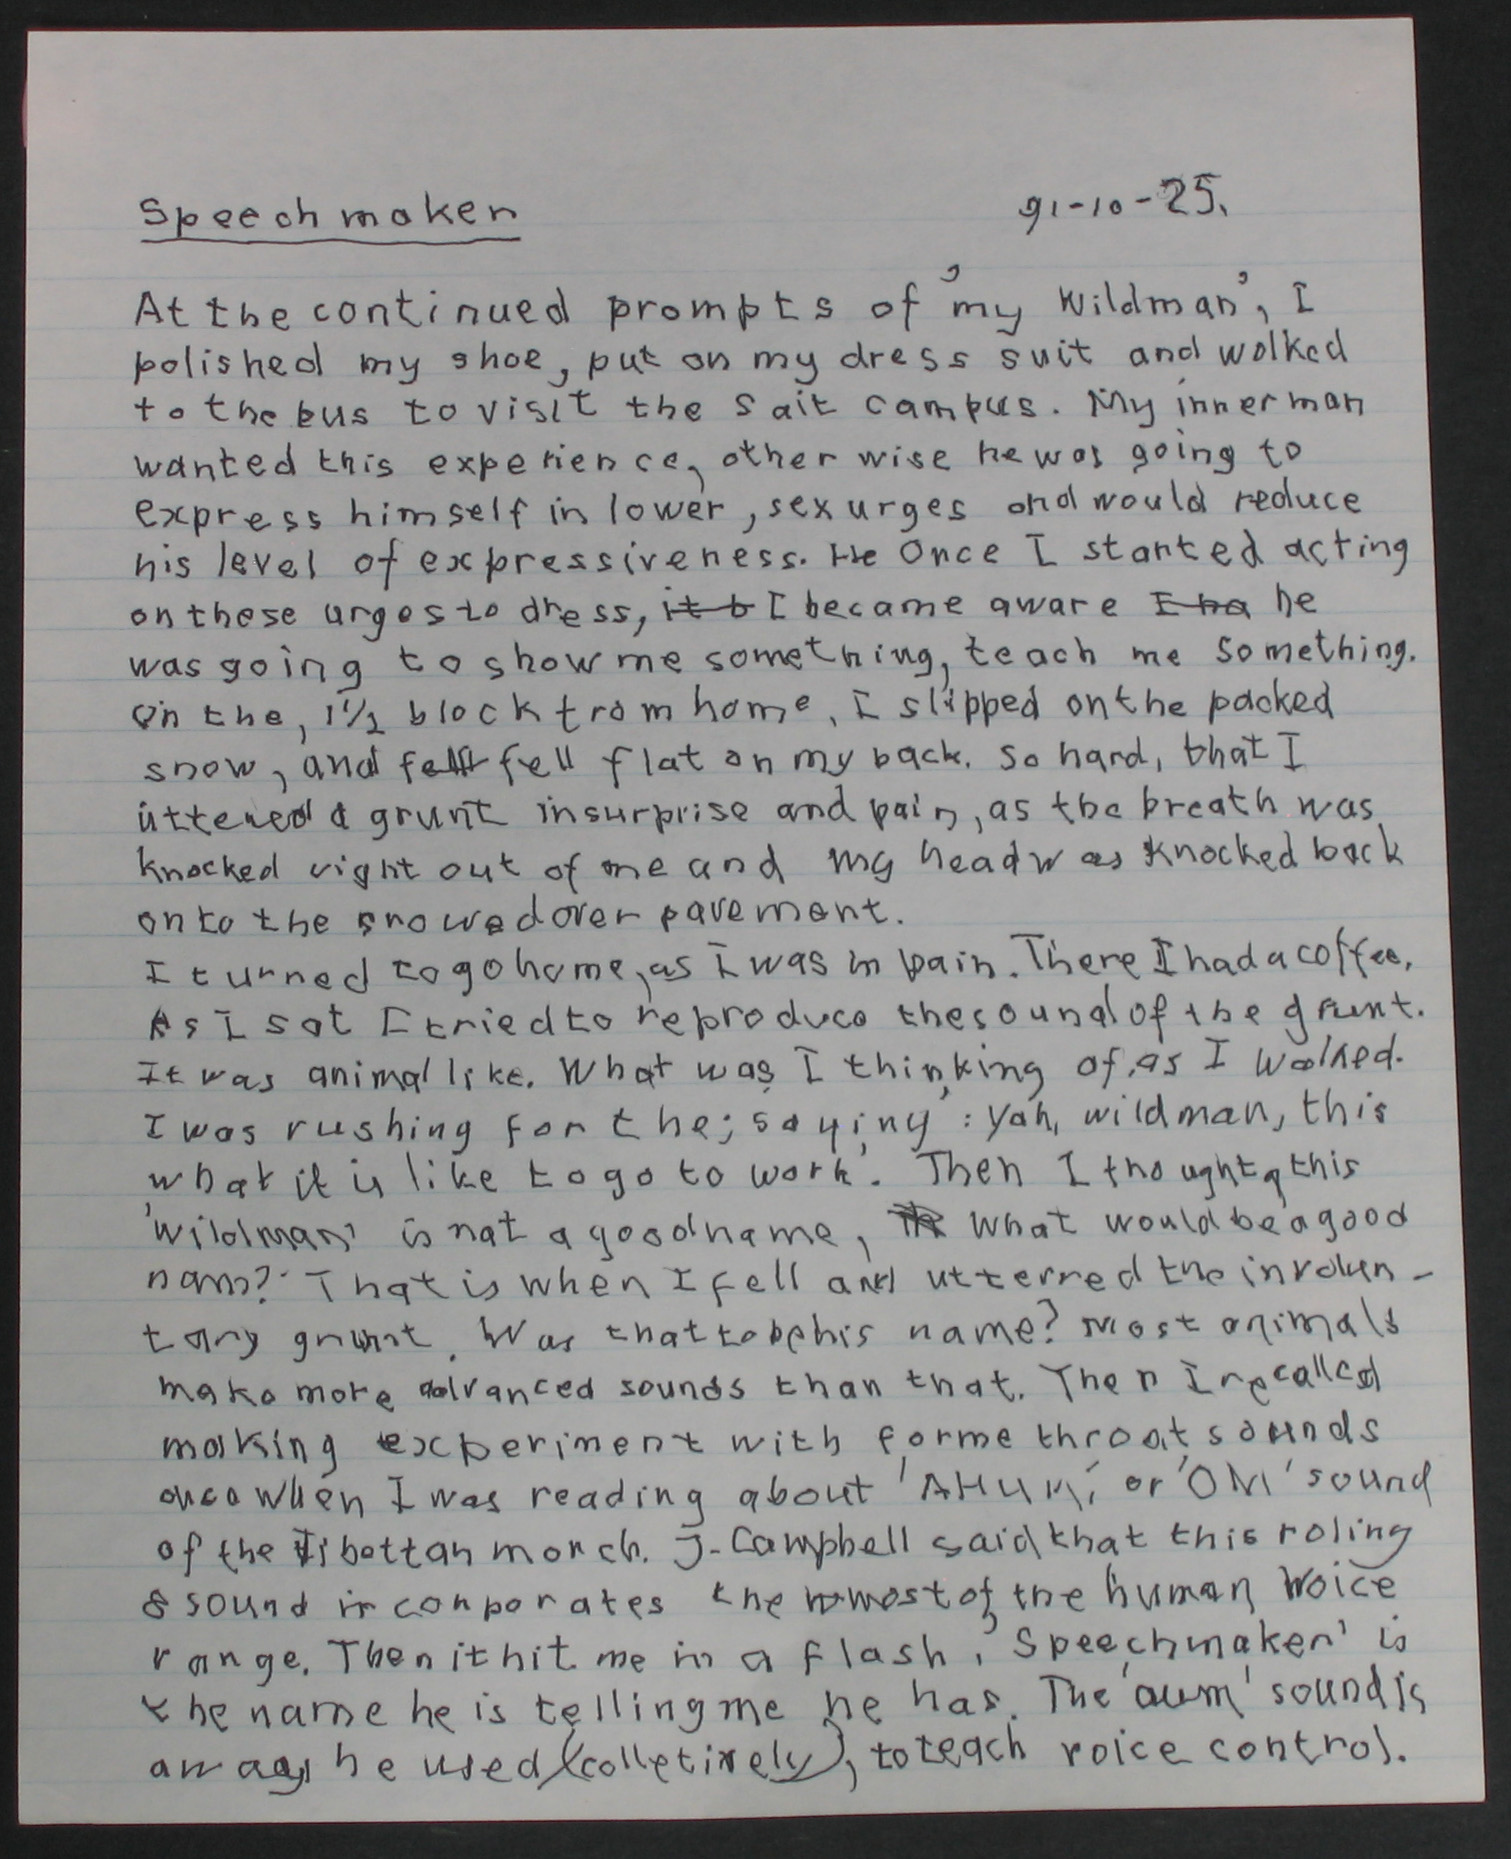 Speechmaker 91-10-25.
At the continued prompts of 'my Wildman', I
polished my shoe, put on my dress suit and walked
to the bus to visit the Sait campus. My inner man
wanted this experience, other wise he was going to
express himself in lower, sex urges and would reduce
his level of expressiveness. He Once I started acting
on these urges to dress, it b I became aware I ha he
was going to show me something, teach me something.
On the, 1 1/2 block from home, I slipped on the packed
snow, and fell flat on my back. So hard, that I
uttered a grunt in surprise and pain, as the breath was
knocked right out of me and my head was knocked back
onto the snowed over pavement.
I turned to go home, as I was in pain. There I had a coffee.
As I sat I tried to reproduce the sound of the grunt.
It was animal like. What was I thinking of, as I walked.
I was rushing for the; saying : Yah, wildman, this
what it is like to go to work'. Then I thought, this
'Wildman' is not a good name, what would be a good
nam? That is when I fell and utterred the involun-
tary grunt. Was that to be his name? Most animals
make more advanced sounds than that. Then I recalled
making experiment with forme throat sounds
once when I was reading about 'AHUM,' or 'OM' sound
of the Tibettan monch. J. Campbell said that this roling
& sound incorporates the most of the human Woice
range. Then it hit me in a flash, 'Speechmaker' is
the name he is telling me he has. The 'aum' sound is
a way he used (colletively), to teach voice control.